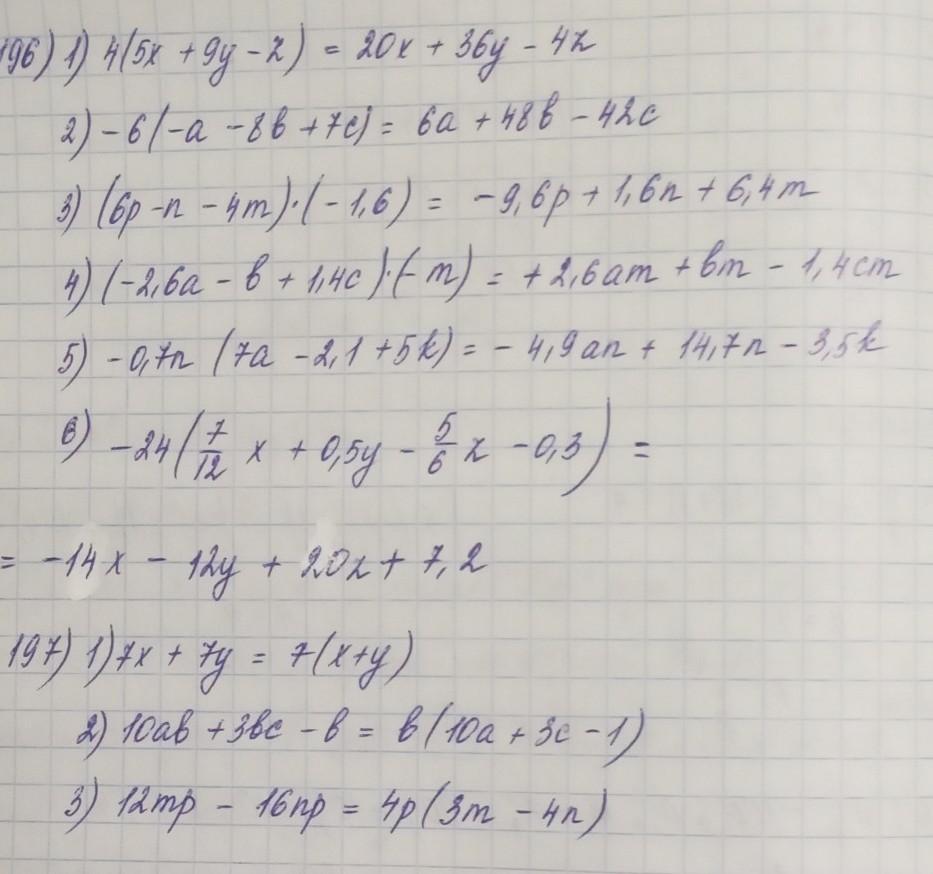 196) 1) 4(5x + 9y - z) = 20x + 36y - 4z
2) -6(-a - 8b + 7c) = 6a + 48b - 42c
3) (6p - n - 4m)·(-1,6) = -9,6p + 1,6n + 6,4m
4) (-2,6a - b + 1,4c)·(-m) = +2,6am + bm - 1,4cm
5) -0,7n (7a - 2,1 + 5k) = -4,9an + 14,7n - 3,5k
6) -24(7/12 x + 0,5y - 5/6 z - 0,3) =
= -14x - 12y + 20z + 7,2
197) 1) 7x + 7y = 7(x+y)
2) 10ab + 3bc - b = b(10a + 3c - 1)
3) 12mp - 16np = 4p(3m - 4n)